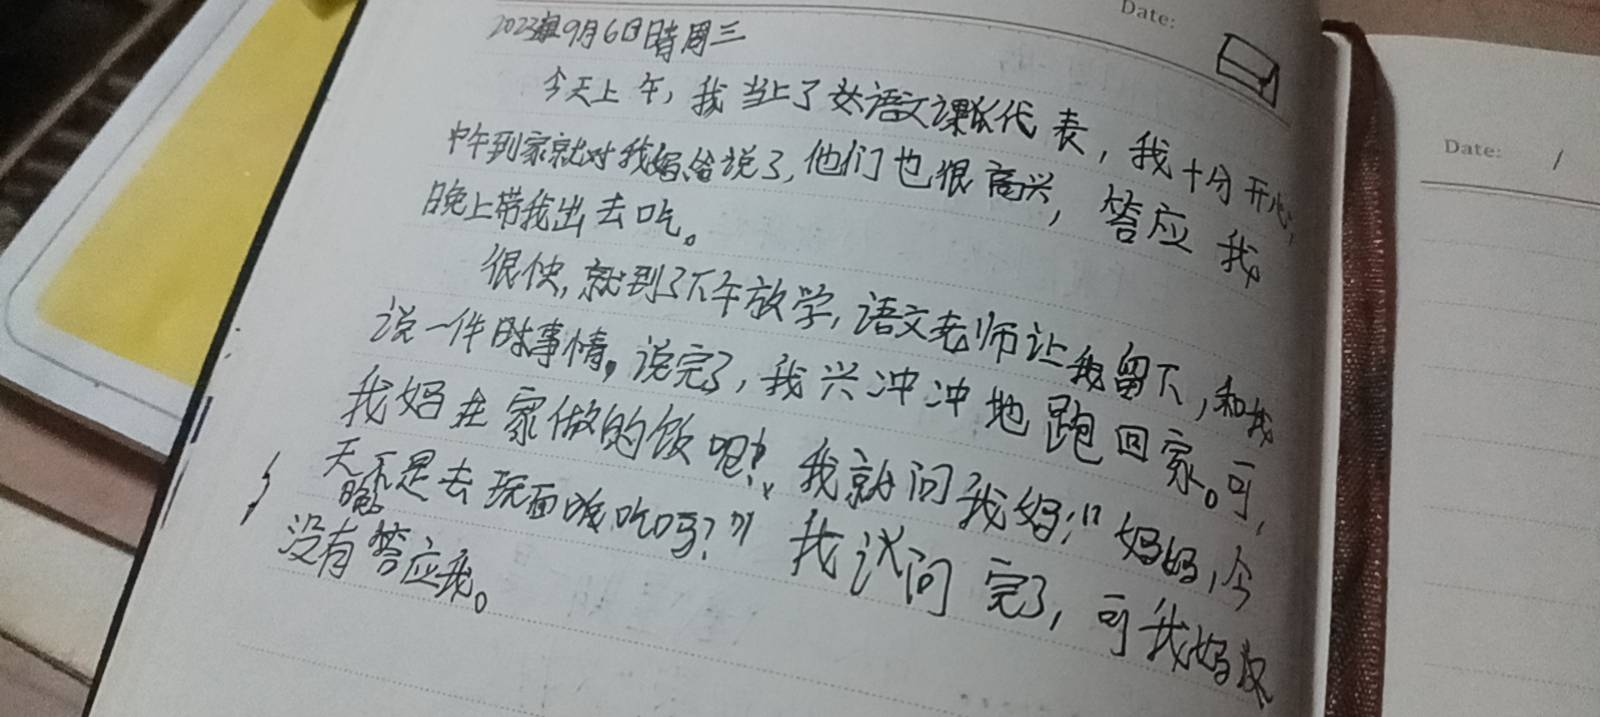 Date:
2023年9月6日晴周三
今天上午，我当上了语文课代表，我十分开心，
中午到家就对我妈爸说了，他们也很高兴，答应我
晚上带我出去吃。
很快，就到了下午放学，语文老师让我留下，和我
说一件事情，说完了，我兴冲冲地跑回家。可，
我妈在家做的饭呢！我就问我妈：“妈妈，今
天晚不是去外面吃吗？”我问完了，可我妈
没有答应我。
Date: